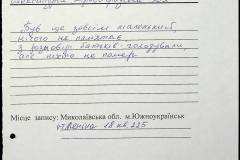 Був ще зовсім маленький,
нічого не пам'ятає.
З розмови батьків - голодували,
але ніхто не помер
Місце запису: Миколаївська обл. м.Южноукраїнськ
Леніна 18 кв 225